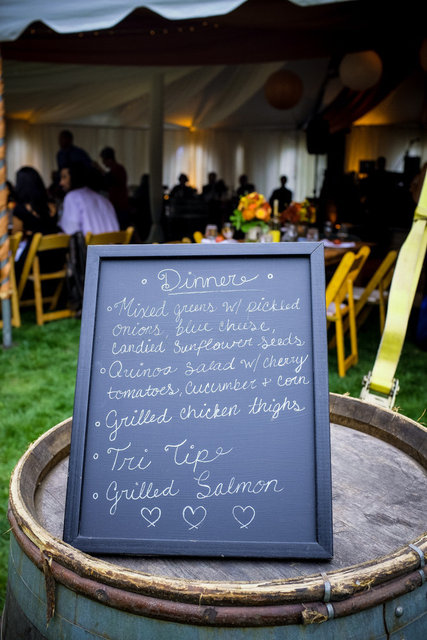 ◦ Dinner ◦
◦ Mixed greens w/ pickled
onions, blue cheese,
candied sunflower seeds
◦ Quinoa salad w/ cherry
tomatoes, cucumber + corn
◦ Grilled chicken thighs
◦ Tri Tip
◦ Grilled Salmon
♡ ♡ ♡